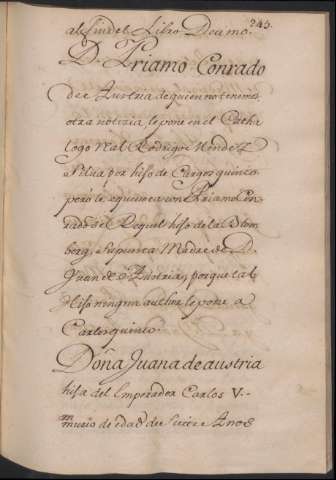 al fin del Libro Decimo.
245.
D. Priamo Conrado
de Austria de quien no tenemos
otra notizia, le pone en el Catha
logo Real Rodrigo Mendez
Silua por hijo de Carlos quinto,
pero le equiuoca con Priamo Con
rado el Requel hijo de la Blom
berg, supuesta Madre de D.
Juan de Austria, porque tal
Hijo ningun author le pone a
Carlos quinto.
Doña Juana de austria
hija del Emperador Carlos V.
murio de edad de siete Años